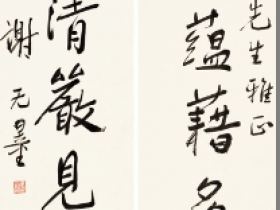 先生雅正
蘊藉
清嚴見
謝无量